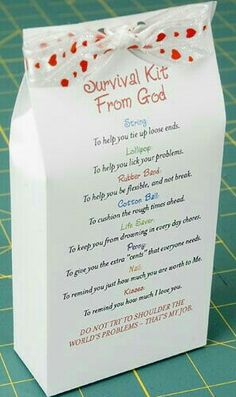 Survival Kit
From God
String
To help you tie up loose ends.
Lollipop
To help you lick your problems.
Rubber Band
To help you be flexible, and not break.
Cotton Ball
To cushion the rough times ahead.
Life Saver
To keep you from drowning in every day chores.
Penny
To give you the extra "cents" that everyone needs.
Nail
To remind you just how much you are worth to Me.
Kisses
To remind you how much I love you.
DO NOT TRY TO SHOULDER THE
WORLD'S PROBLEMS – THAT'S MY JOB.